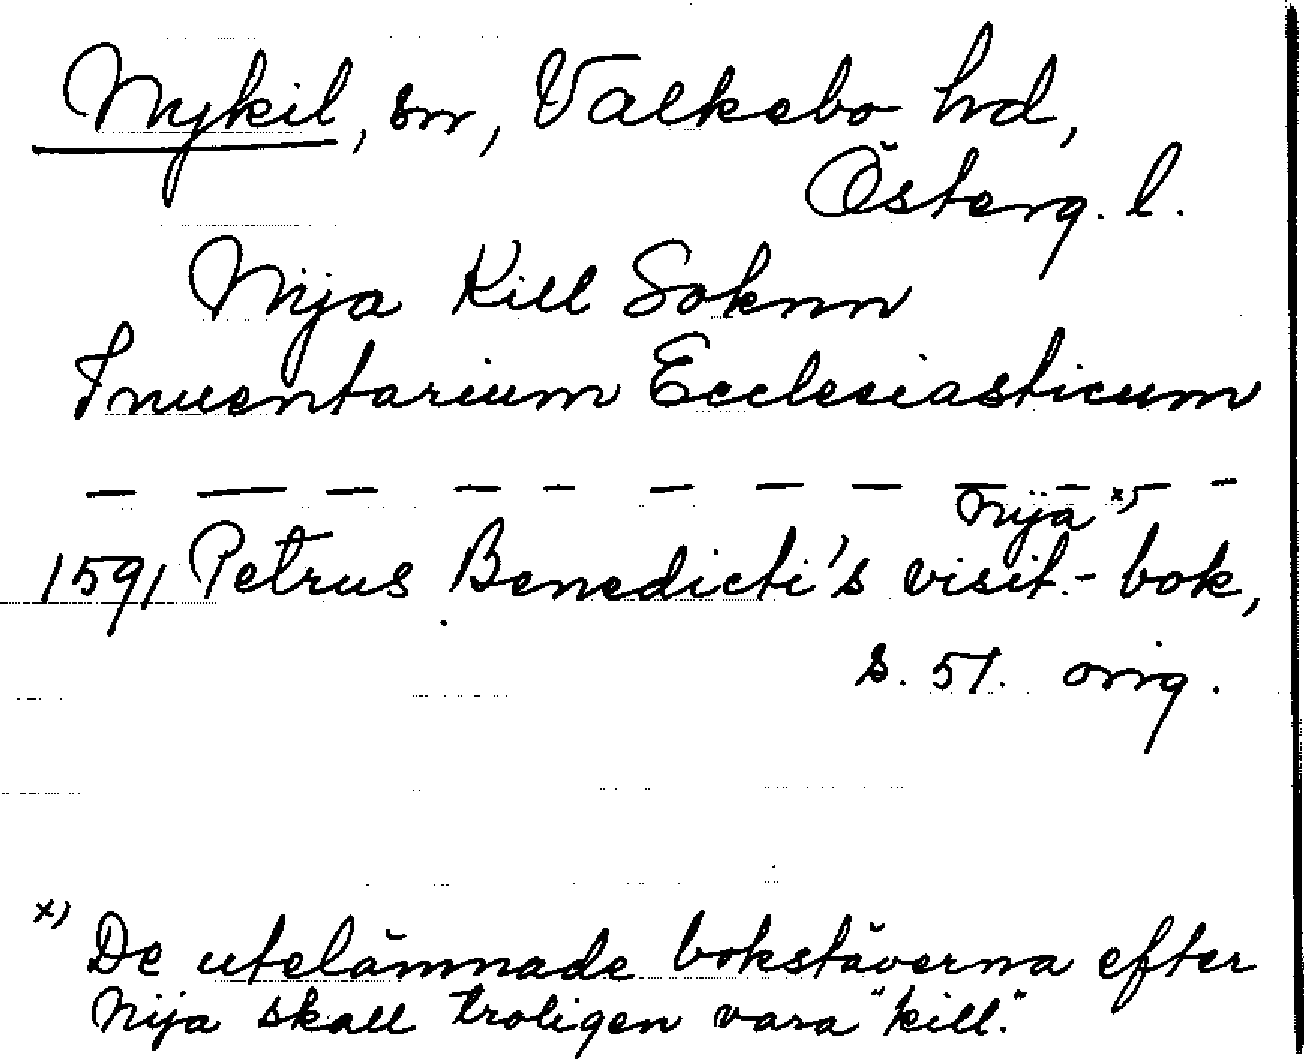 Nykil, sn, Valkebo hd,
Österg. l.
Nija Kill Soknn
Inuentarium Ecclesiasticum
— — — — — — — — — — — -
Nija x)
1591 Petrus Benedicti's visit.- bok,
s. 51. orig.
x) De utelämnade bokstäverna efter
Nija skall troligen vara "kill."